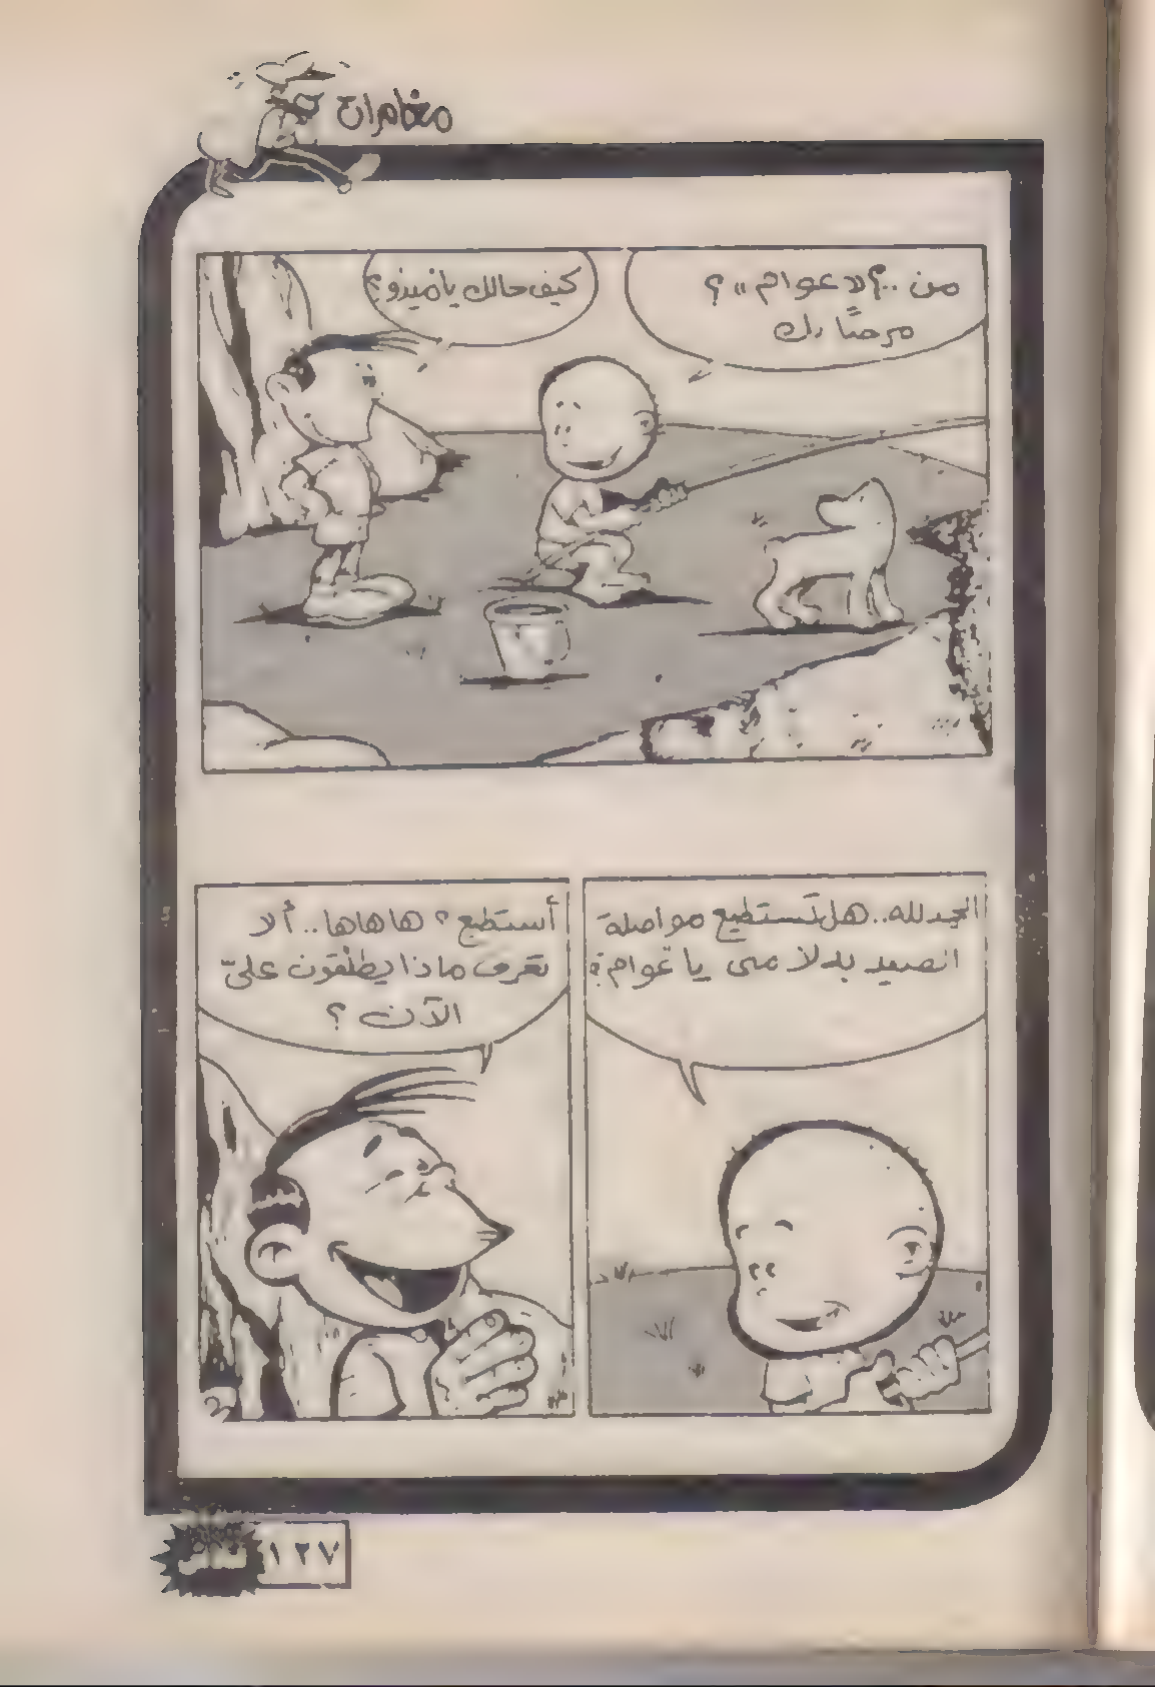 مغامرات
من ..؟ «عوام» ؟
مرحبًا بك
كيف حالك يا ميذو؟
الحمد لله.. هل تستطيع مواصلة
الصيد بدلا مني يا عوام؟
أستطيع؟ هاهاها.. ألا
تعرف ماذا يطلقون عليّ
الآن ؟
١٢٧